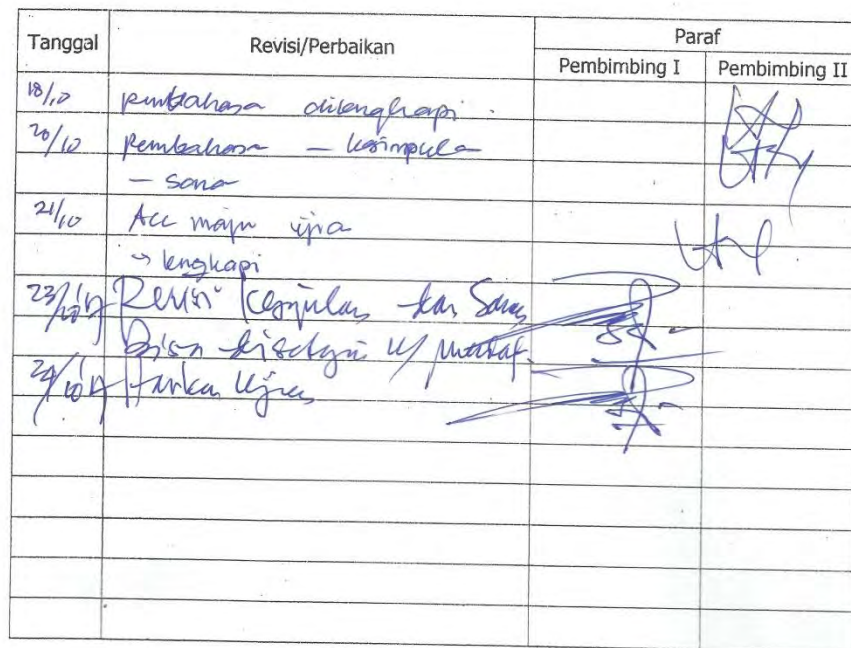 Tanggal Revisi/Perbaikan Paraf
Pembimbing I Pembimbing II
18/10 pembahasa dilengkapi.
20/10 Pembahasa – kesimpula
– sara
21/10 Acc maju ujia
→ lengkapi
Revisi kesimpulan dan Saran
Bisa disetujui u/
Ujian